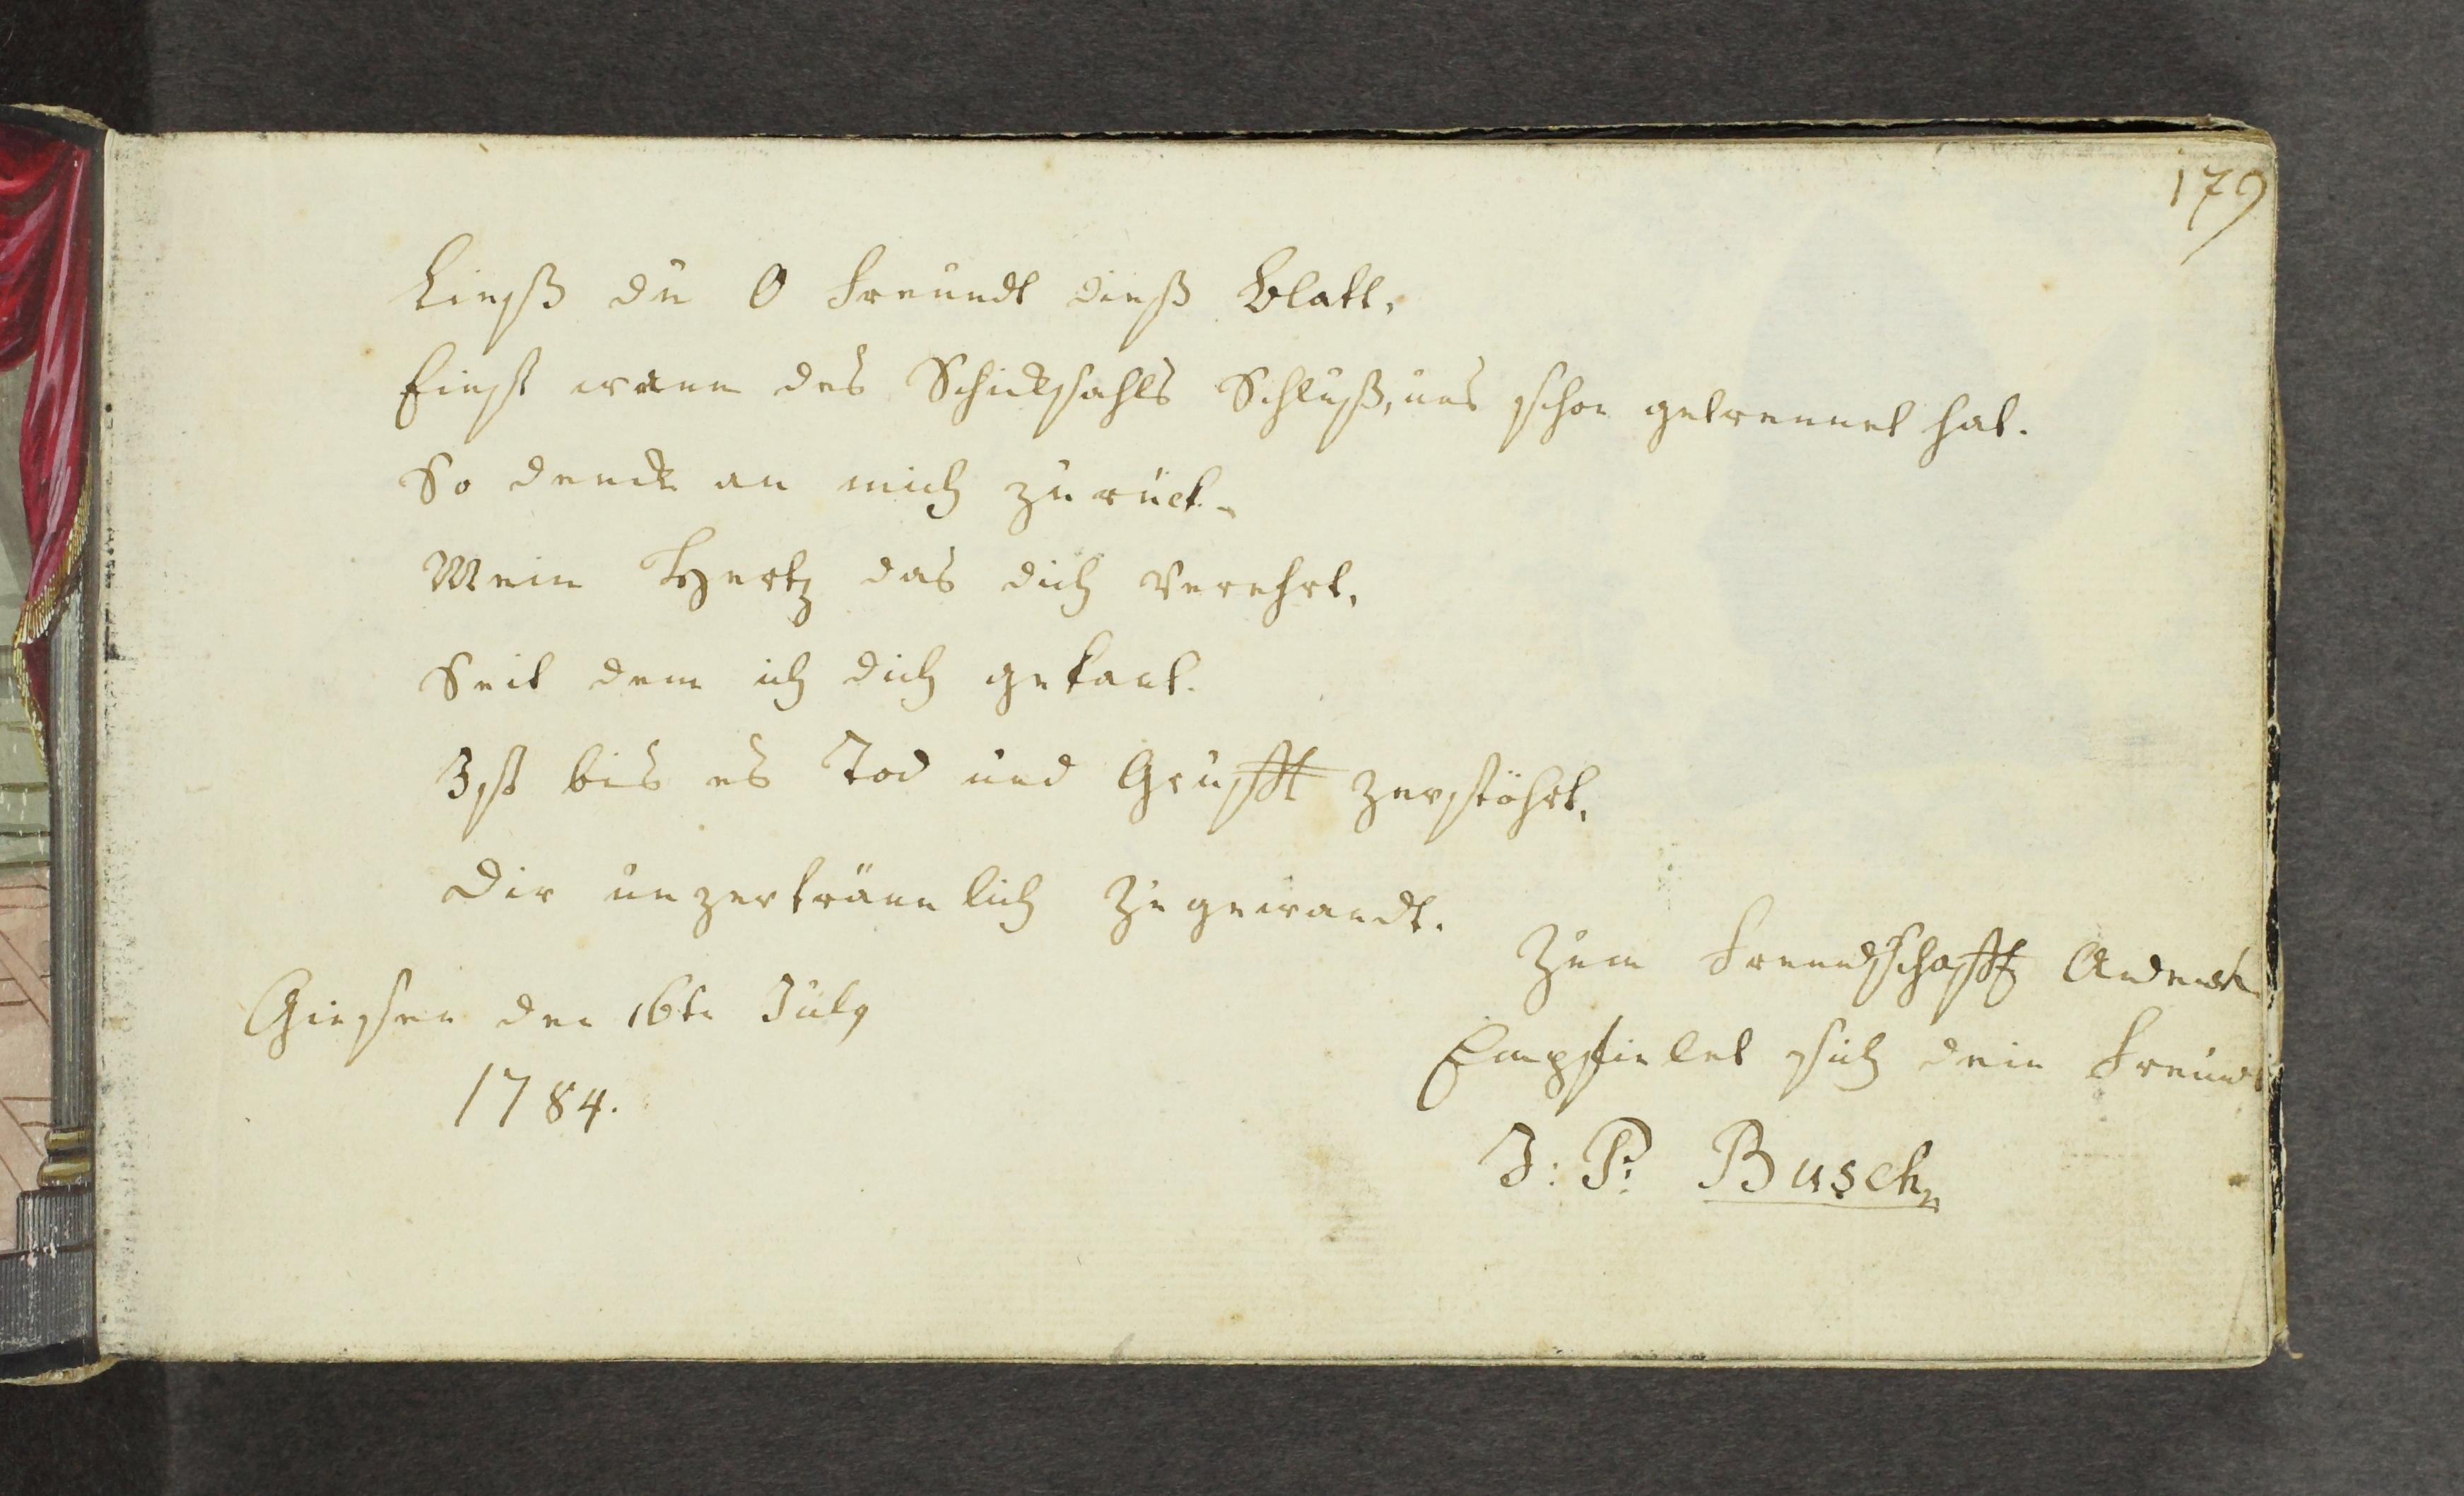 179
Liesß du O Freundt dieß Blatt,
Einst wann des Schicksahls Schluß, uns schon getrennet hat.
So denck an mich zurück.
Mein Hertz das dich verehrt,
Seit dem ich dich gekant.
Ist bis es Tod und Grufft zerstöhrt,
Dir unzertränlich Zugewandt.
Zum Freundschafft Andenk
Giessen den 16te July
Empfielet sich dein Freund
1784.
J: P: Busch